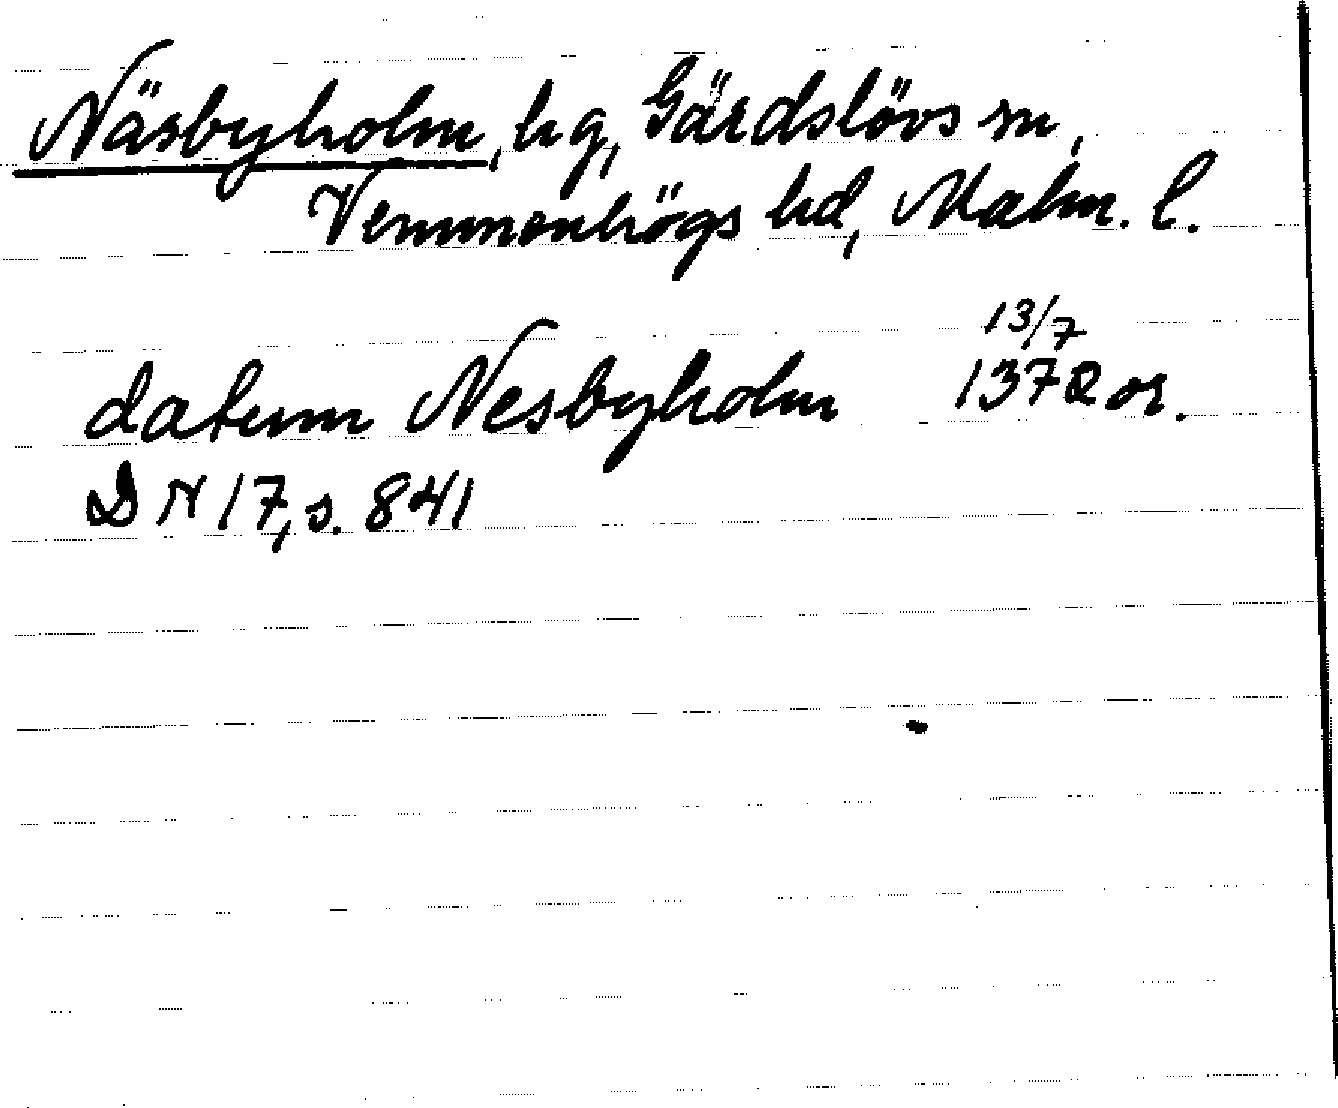 Näsbyholm, hg, Gärdslövs sn,
Vemmenhögs hd, Malm. l.
13/7
datum Nesbyholm 1372 or.
DN 17, s. 841